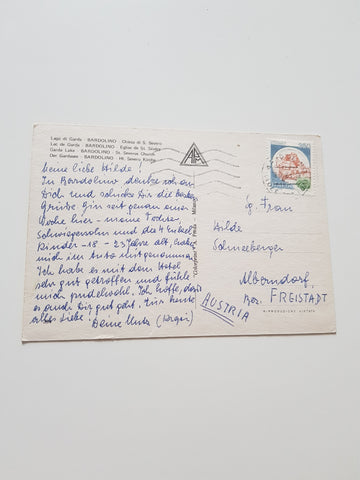 Lago di Garda - BARDOLINO - Chiesa di S. Severo
Lac de Garda - BARDOLINO - Eglise de St. Sévère
Garda Lake - BARDOLINO - St. Severus Church
Der Gardasee - BARDOLINO - Hl. Severo Kirche
Meine liebe Hilde!
In Bardolino denke ich an
Dich und schicke Dir die besten
Grüße. Bin seit genau einer
Woche hier - meine Tochter,
Schwiegersohn und die 4 Enkel
Kinder - 18 - 23 Jahre alt, haben
mich im Auto mitgenommen.
Ich habe es mit dem Hotel
sehr gut getroffen und fühle
mich pudelwohl. Ich hoffe, dass
es auch Dir gut geht. Für heute
alles Liebe
Deine
Sg. Frau
Hilde
Schneeberger
Alberndorf,
Bez. FREISTADT
AUSTRIA
RIPRODUZIONE VIETATA